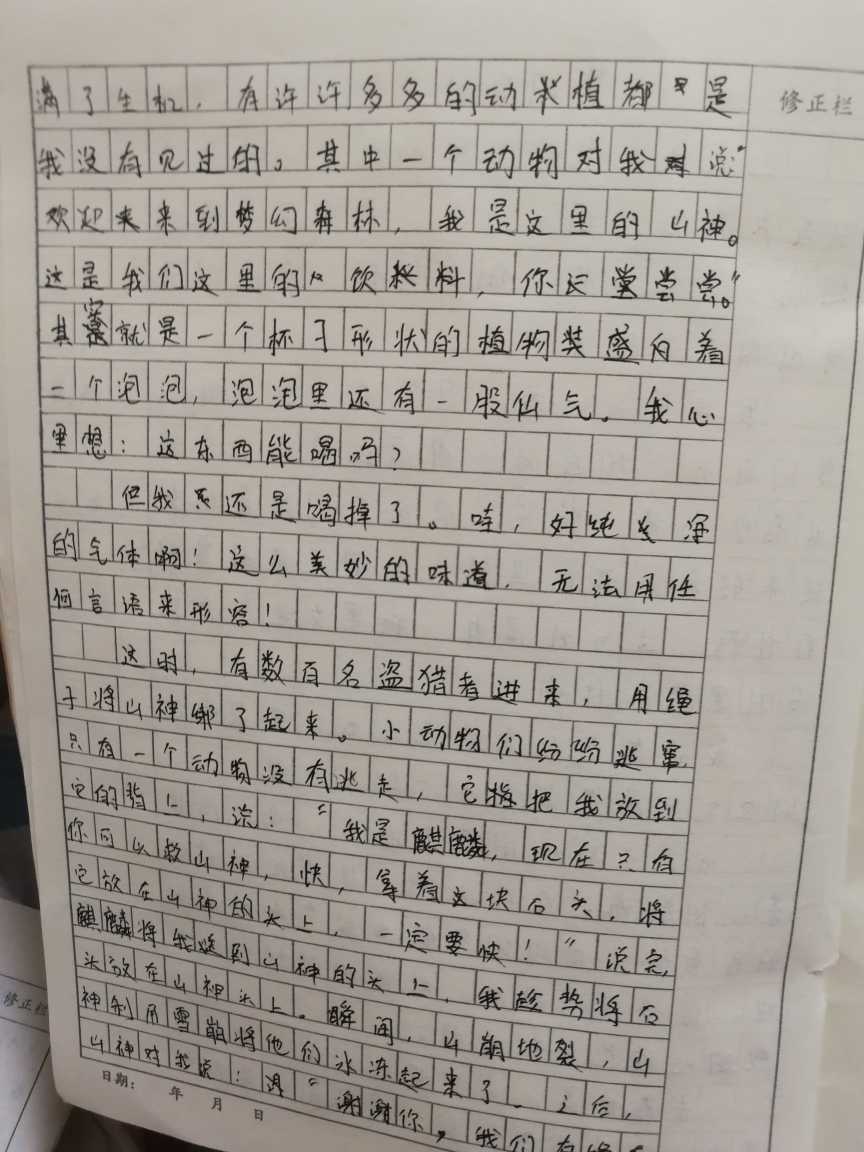 满了生机，有许许多多的动植都是
修正栏
我没有见过的。其中一个动物对我说：“
欢迎来到梦幻森林，我是这里的山神。
这是我们这里的饮料，你尝尝。”
其实就是一个杯子形状的植物装盛着
一个泡泡，泡泡里还有一股仙气。我心
里想：这东西能喝吗？
但我还是喝掉了。哇，好纯净
的气体啊！这么美妙的味道，无法用任
何言语来形容！
这时，有数百名盗猎者进来，用绳
子将山神绑了起来。小动物们纷纷逃窜，
只有一个动物没有逃走，它把我放到
它的背上，说：“我是麒麟，现在只有
你可以救山神，快，拿着这块石头，将
它放在山神的头上，一定要快！”说完，
麒麟将我送到山神的头上，我趁势将石
头放在山神头上。瞬间，山崩地裂，山
神利用雪崩将他们冰冻起来了。之后，
山神对我说：“谢谢你，我们
修正栏
日期： 年 月 日